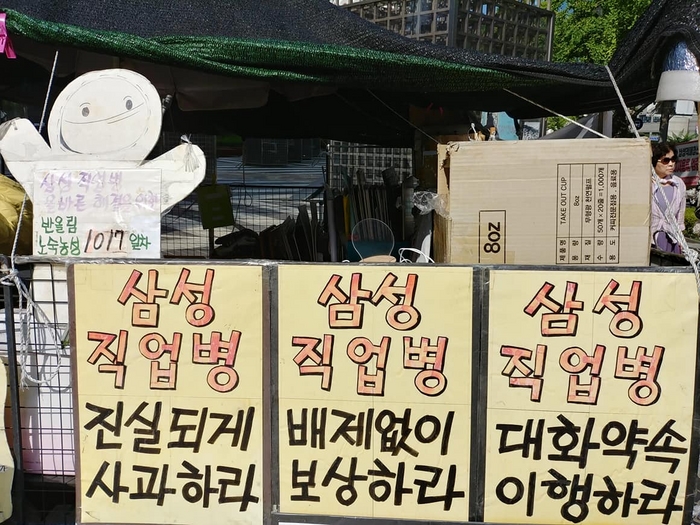 삼성 직업병
올바른 해결을 위해
반올림
노숙농성 1017 일차
8oz
TAKE OUT CUP
8oz
50개 × 20줄 = 1,000개
제품명
용량
재질
수량
용도
삼성
직업병
진실되게
사과하라
삼성
직업병
배제없이
보상하라
삼성
직업병
대화약속
이행하라